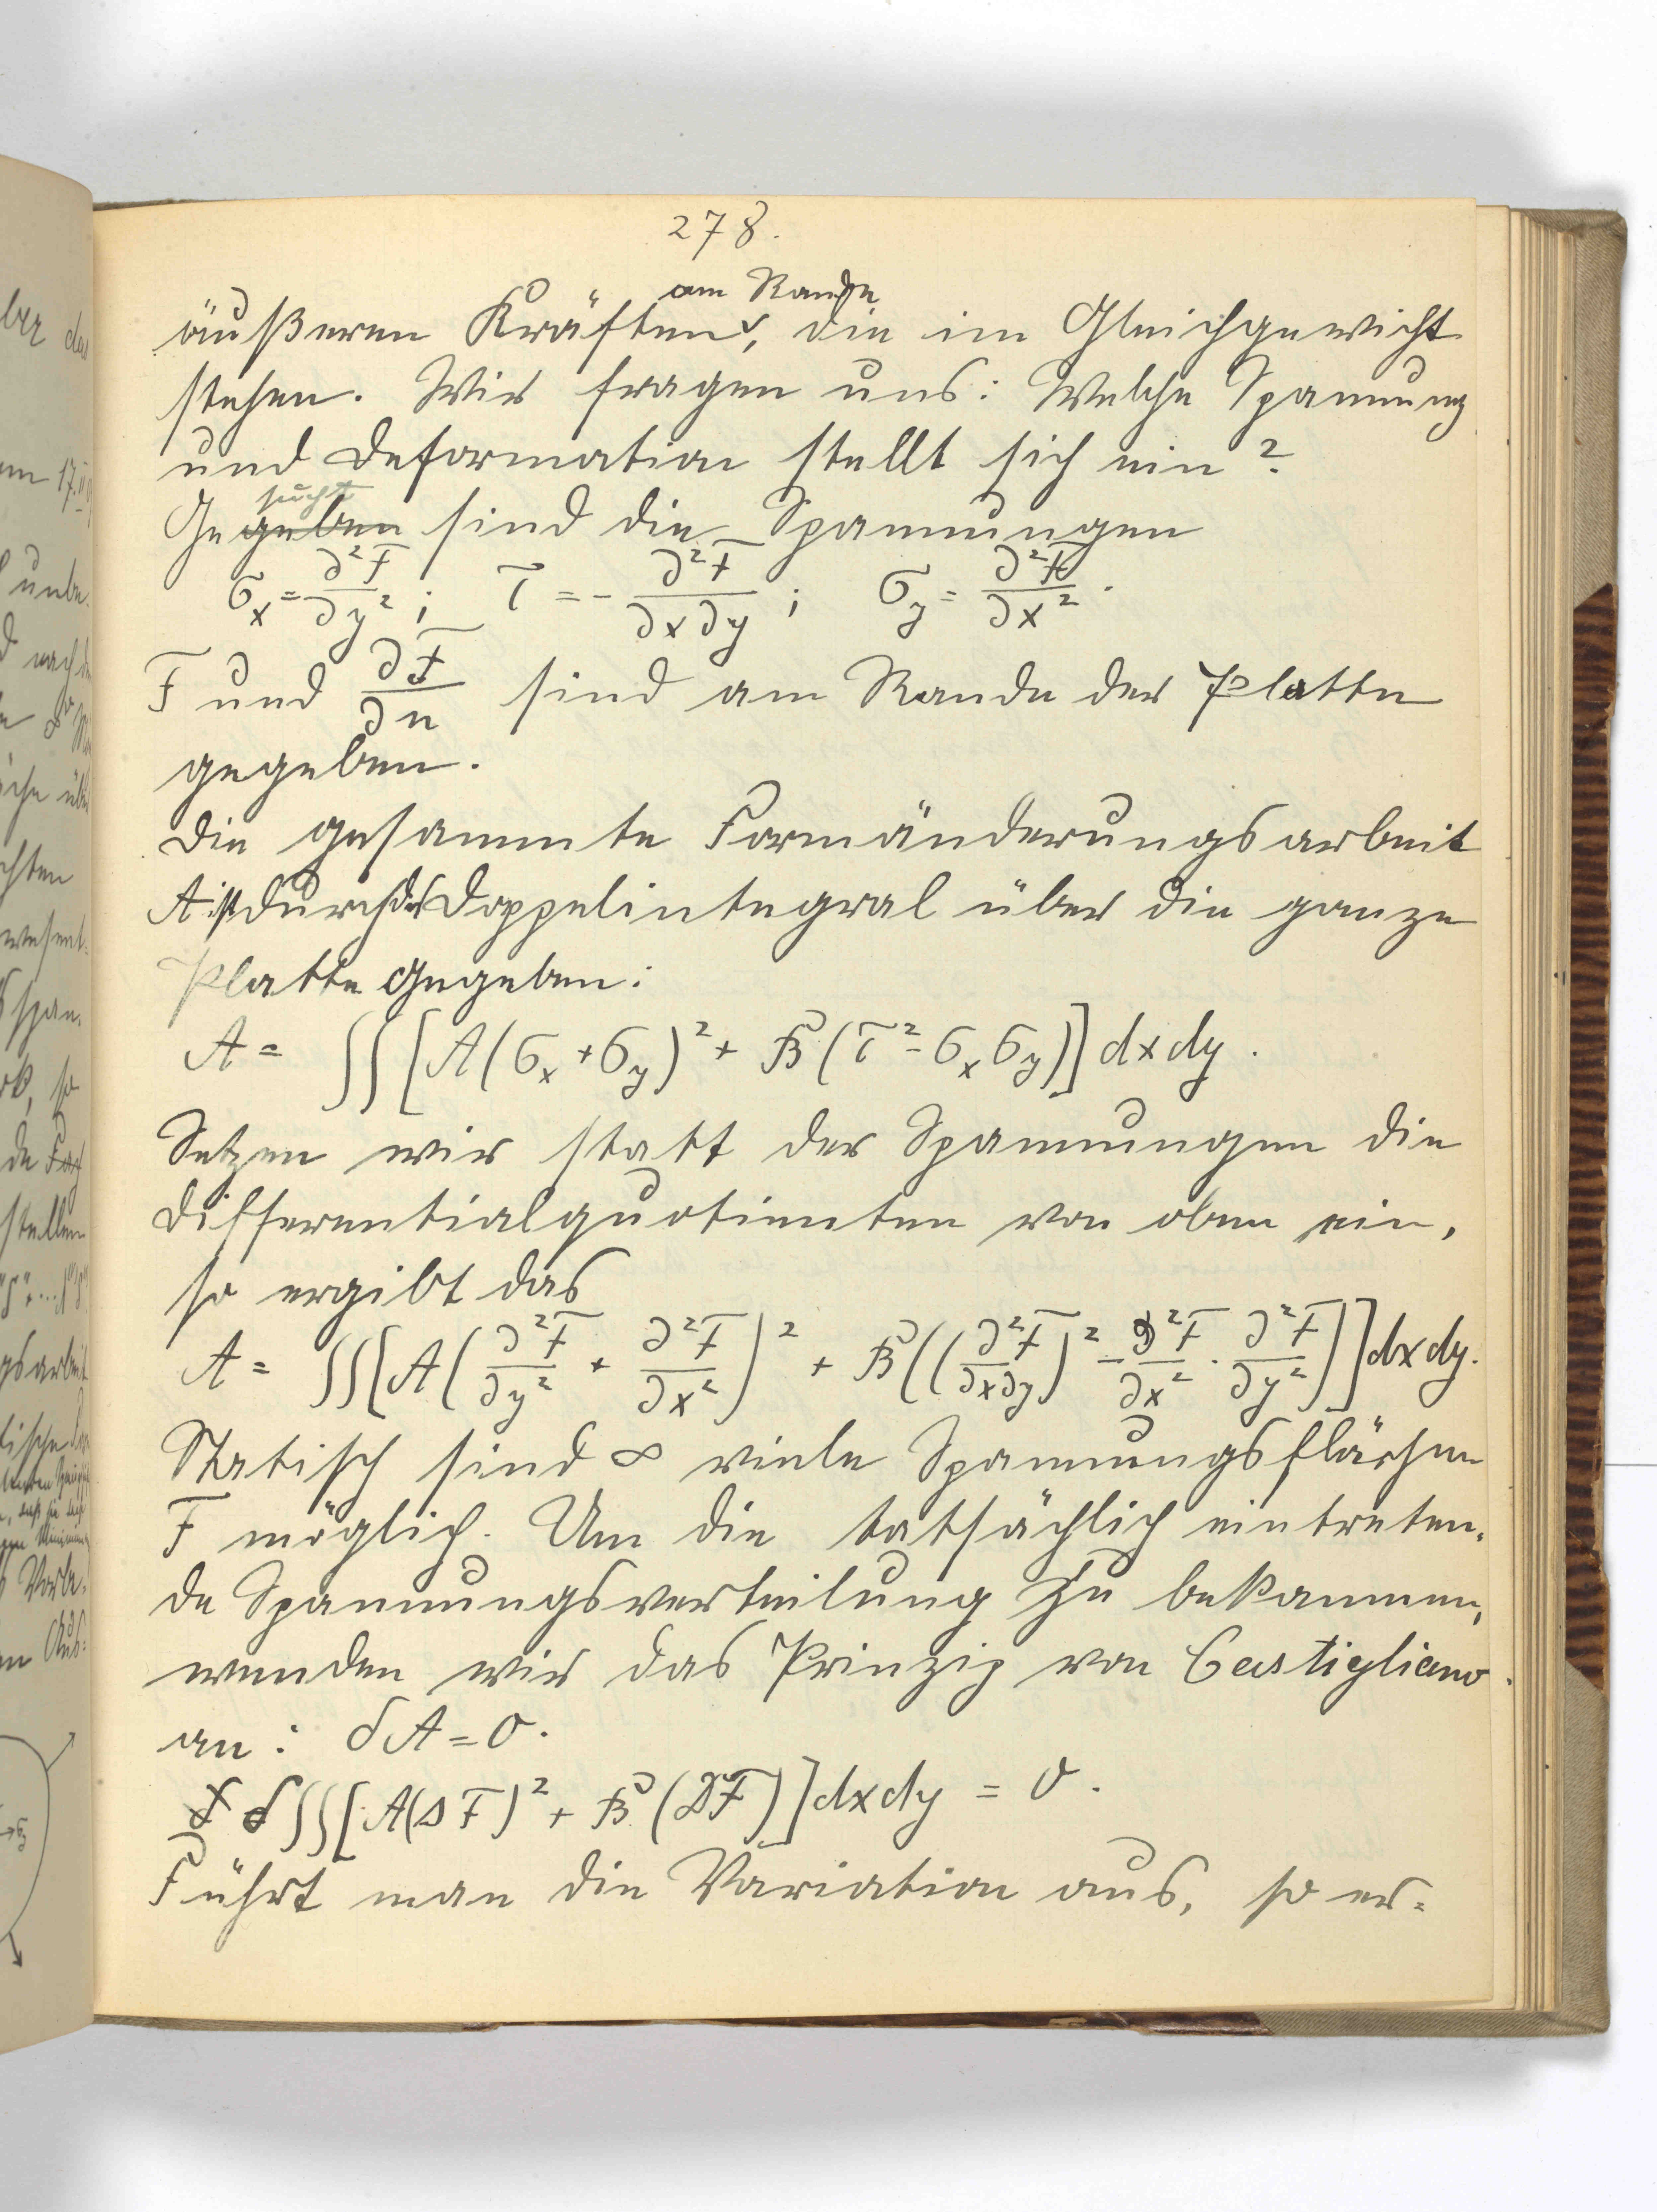 278.
am Rande
äußeren Kräften, die im Gleichgewicht
stehen. Wir fragen uns: Welche Spannung
und Deformation stellt sich ein?
sucht
Gegeben sind die Spannungen
σx = ∂²F/∂y² ; τ = - ∂²F/∂x∂y ; σy = ∂²F/∂x² .
F und ∂F/∂n sind am Rande der Platte
gegeben.
Die gesammte Formänderungsarbeit
A ist durch das Doppelintegral über die ganze
Platte gegeben:
A = ∬[A(σx + σy)² + B(τ² - σx σy)] dx dy .
Setzen wir statt der Spannungen die
Differentialquotienten von oben ein,
so ergibt das
A = ∬[A(∂²F/∂y² + ∂²F/∂x²)² + B((∂²F/∂x∂y)² - ∂²F/∂x² · ∂²F/∂y²)] dx dy.
Statisch sind ∞ viele Spannungsflächen
F möglich. Um die tatsächlich eintreten-
de Spannungsverteilung zu bekommen,
wenden wir das Prinzip von Castigliano
an: δA = 0.
δ∬[A(ΔF)² + B(DF)] dx dy = 0 .
Führt man die Variation aus, so er-